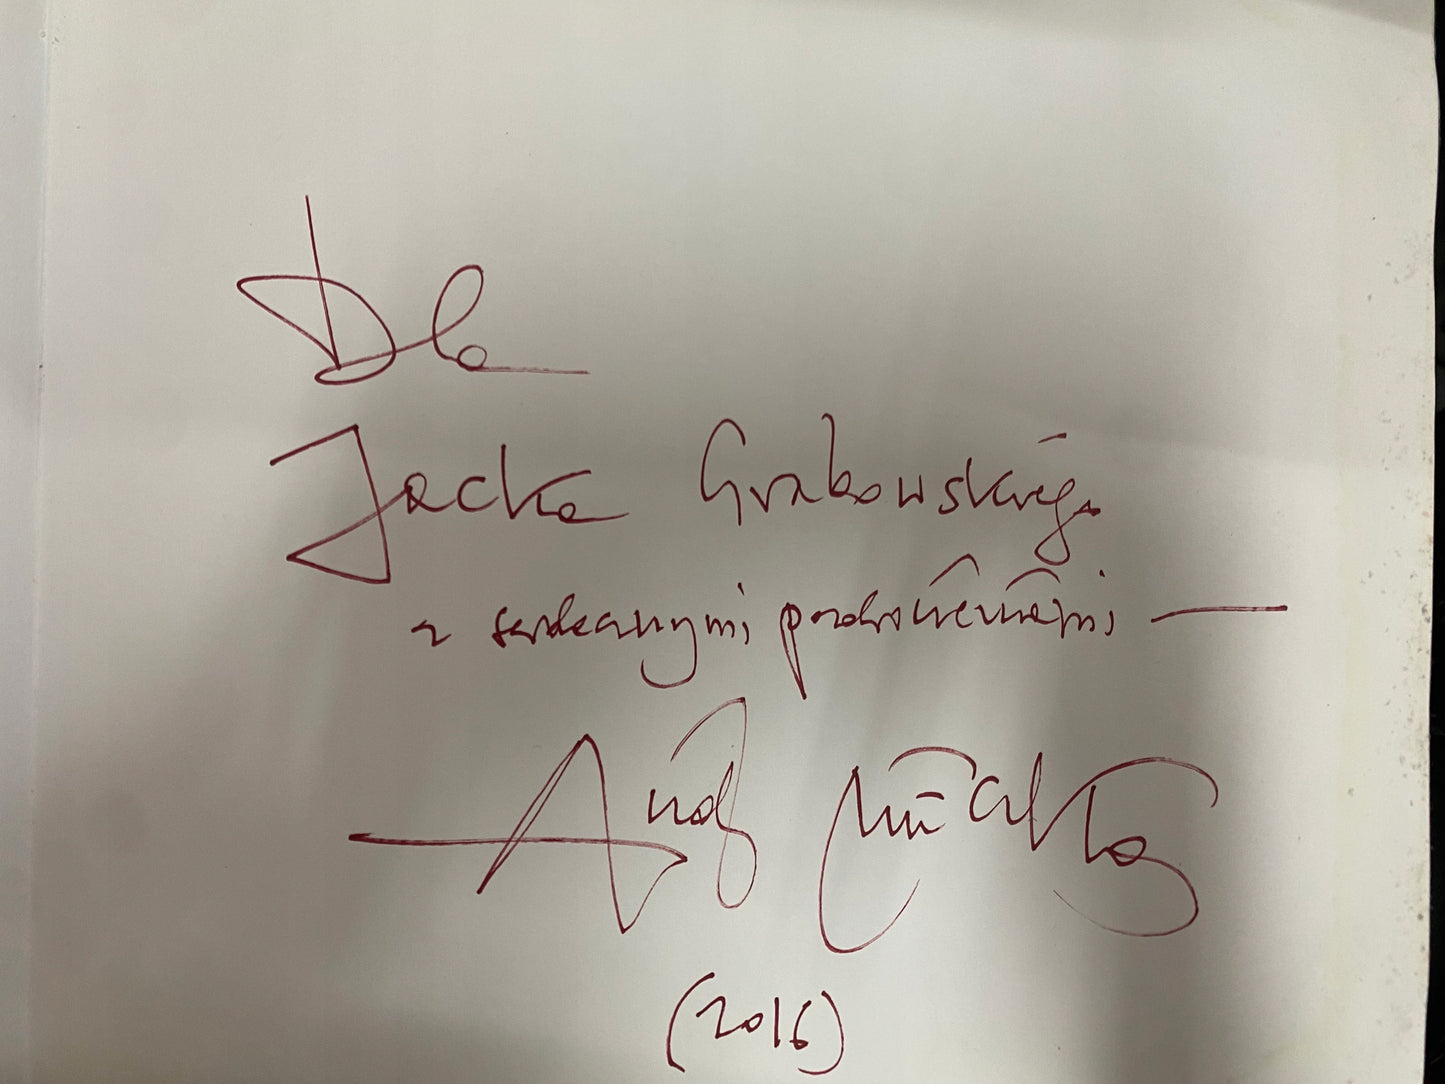 Dla
Jacka Grabowskiego
z serdecznymi pozdrowieniami —
(2016)